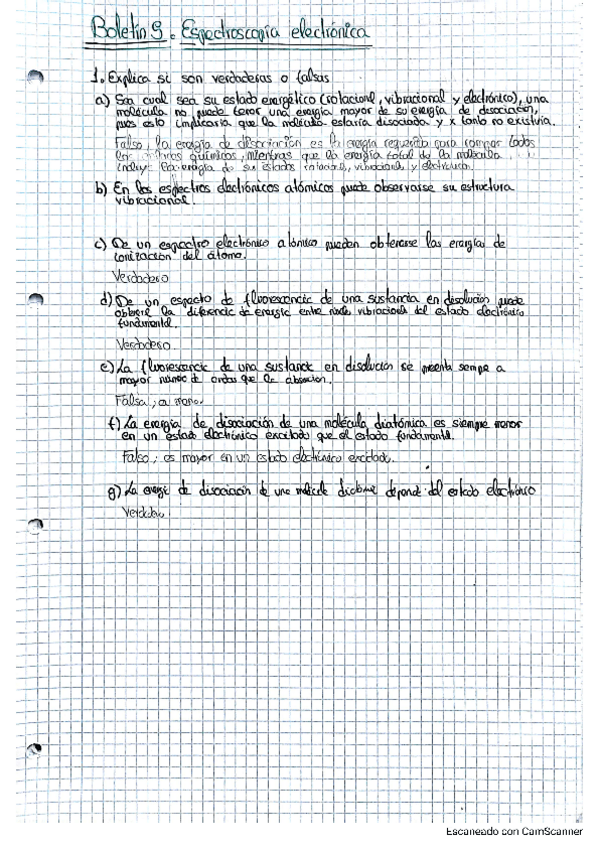 Boletín 9. Espectroscopía electrónica
1. Explica si son verdaderas o falsas
a) Sea cual sea su estado energético (rotacional, vibracional y electrónico), una
molécula no puede tener una energía mayor de su energía de disociación,
pues esto implicaría que la molécula estaría disociada y x tanto no existiría.
Falso, la energía de disociación es la energía requerida para romper todos
los químicos, mientras que la energía total de la molécula
incluye la energía de su estados vibracional y electrónica.
b) En los espectros electrónicos atómicos puede observarse su estructura
vibracional.
c) De un espectro electrónico atómico pueden obtenerse las energías de
ionización del átomo.
Verdadero
d) De un espectro de fluorescencia de una sustancia en disolución puede
obtenerse la diferencia de energía entre vibracional del estado electrónico
fundamental.
Verdadero.
e) La fluorescencia de una sustancia en disolución se siempre a
mayor número de ondas que la absorción.
Falsa, a menor
f) La energía de disociación de una molécula diatómica es siempre menor
en un estado electrónico excitado que el estado fundamental.
Falso, es mayor en un estado electrónico excitado.
g) La energía de disociación de una molécula depende del estado electrónico
Verdadero.
Escaneado con CamScanner